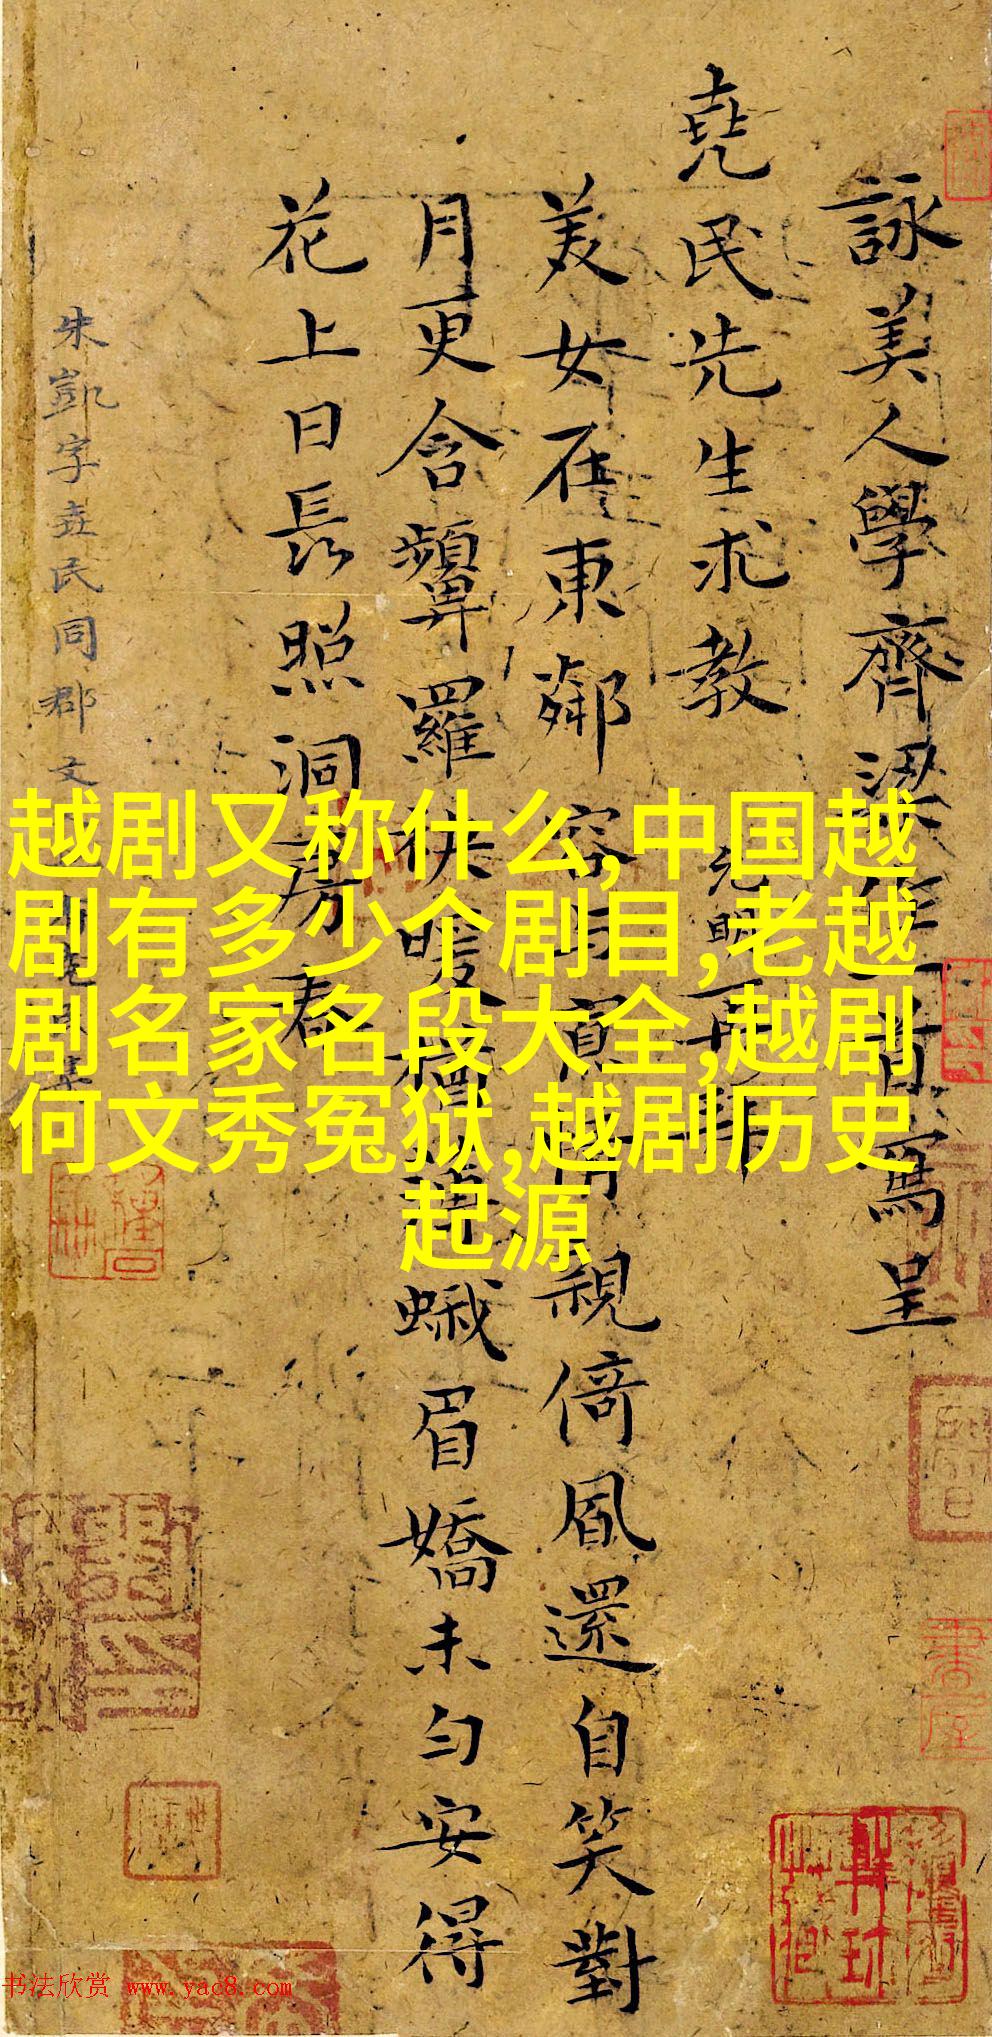 詠美人學齊梁體一首寫呈
堯民先生求教 允明再拜
美女在東鄰 容與寘情親倚風還自笑對
月更含顰羅供暖 蛾眉嬌未勻安得
花上日長照洞房春
朱凱字堯民同郡文
越剧又称什么,中国越
剧有多少个剧目,老越
剧名家名段大全,越剧
何文秀冤狱,越剧历史
起源
书法欣赏 www.yac8.com